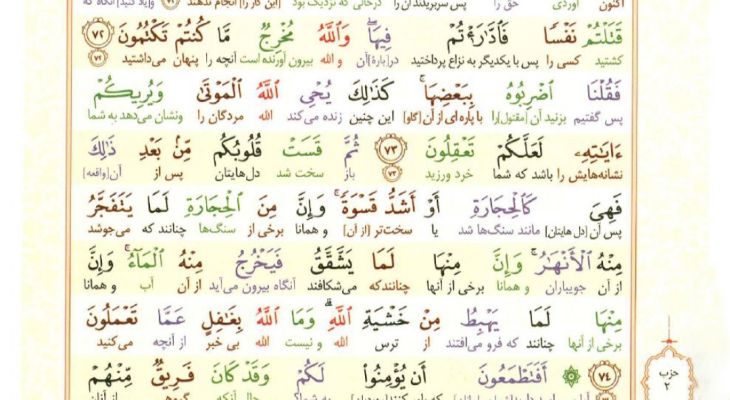 اکنون آوردی حق را پس سربریدند آن را درحالی که نزدیک بود [این کار را] انجام ندهند ۷۱ و [یاد کنید] آنگاه که
قَتَلۡتُمۡ نَفۡسٗا فَٱدَّٰرَٰٔتُمۡ فِيهَاۖ وَٱللَّهُ مُخۡرِجٞ مَّا كُنتُمۡ تَكۡتُمُونَ ٧٢
کشتید کسی را پس با یکدیگر به نزاع پرداختید در [باره] آن و الله بیرون آورنده است آنچه را پنهان می‌داشتید ۷۲
فَقُلۡنَا ٱضۡرِبُوهُ بِبَعۡضِهَاۚ كَذَٰلِكَ يُحۡيِ ٱللَّهُ ٱلۡمَوۡتَىٰ وَيُرِيكُمۡ
پس گفتیم بزنید آن [مقتول] را با پاره ای از آن [گاو] این چنین زنده می‌کند الله مردگان را ونشان می‌دهد به شما
ءَايَٰتِهِۦ لَعَلَّكُمۡ تَعۡقِلُونَ ٧٣ ثُمَّ قَسَتۡ قُلُوبُكُم مِّنۢ بَعۡدِ ذَٰلِكَ
نشانه‌هایش را باشد که شما خرد ورزید ۷۳ باز سخت شد دل‌هایتان پس از آن [واقعه]
فَهِيَ كَٱلۡحِجَارَةِ أَوۡ أَشَدُّ قَسۡوَةٗۚ وَإِنَّ مِنَ ٱلۡحِجَارَةِ لَمَا يَتَفَجَّرُ
پس آن [دل هایتان] مانند سنگ‌ها شد یا سخت‌تر [از آن] و همانا برخی از سنگ‌ها چنانند که می‌جوشد
مِنۡهُ ٱلۡأَنۡهَٰرُۚ وَإِنَّ مِنۡهَا لَمَا يَشَّقَّقُ فَيَخۡرُجُ مِنۡهُ ٱلۡمَآءُۚ وَإِنَّ
از آن جویباران و همانا برخی از آنها چنانندکه می‌شکافند آنگاه بیرون می‌آید از آن آب و همانا
مِنۡهَا لَمَا يَهۡبِطُ مِنۡ خَشۡيَةِ ٱللَّهِۗ وَمَا ٱللَّهُ بِغَٰفِلٍ عَمَّا تَعۡمَلُونَ
برخی از آنها چنانند که فرو می‌افتند از ترس الله و نیست الله بی خبر از آنچه می‌کنید
٧٤ ۞ أَفَتَطۡمَعُونَ أَن يُؤۡمِنُواْ لَكُمۡ وَقَدۡ كَانَ فَرِيقٞ مِّنۡهُمۡ
حزب
۲